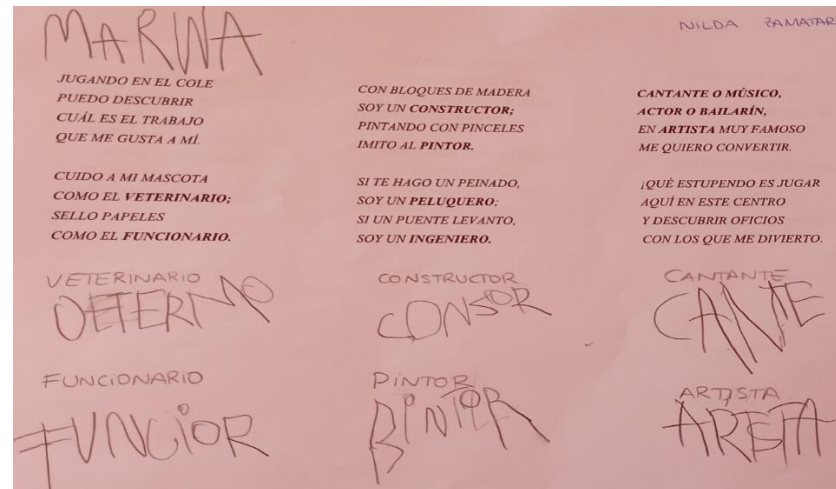 MARINA
NILDA ZAMATAR
JUGANDO EN EL COLE
PUEDO DESCUBRIR
CUÁL ES EL TRABAJO
QUE ME GUSTA A MÍ.
CUIDO A MI MASCOTA
COMO EL VETERINARIO;
SELLO PAPELES
COMO EL FUNCIONARIO.
CON BLOQUES DE MADERA
SOY UN CONSTRUCTOR;
PINTANDO CON PINCELES
IMITO AL PINTOR.
SI TE HAGO UN PEINADO,
SOY UN PELUQUERO;
SI UN PUENTE LEVANTO,
SOY UN INGENIERO.
CANTANTE O MÚSICO,
ACTOR O BAILARÍN,
EN ARTISTA MUY FAMOSO
ME QUIERO CONVERTIR.
¡QUÉ ESTUPENDO ES JUGAR
AQUÍ EN ESTE CENTRO
Y DESCUBRIR OFICIOS
CON LOS QUE ME DIVIERTO.
VETERINARIO
OETERNO
CONSTRUCTOR
CONSOR
CANTANTE
CANTE
FUNCIONARIO
FUNCIOR
PINTOR
BINTOR
ARTISTA
ARTSTA